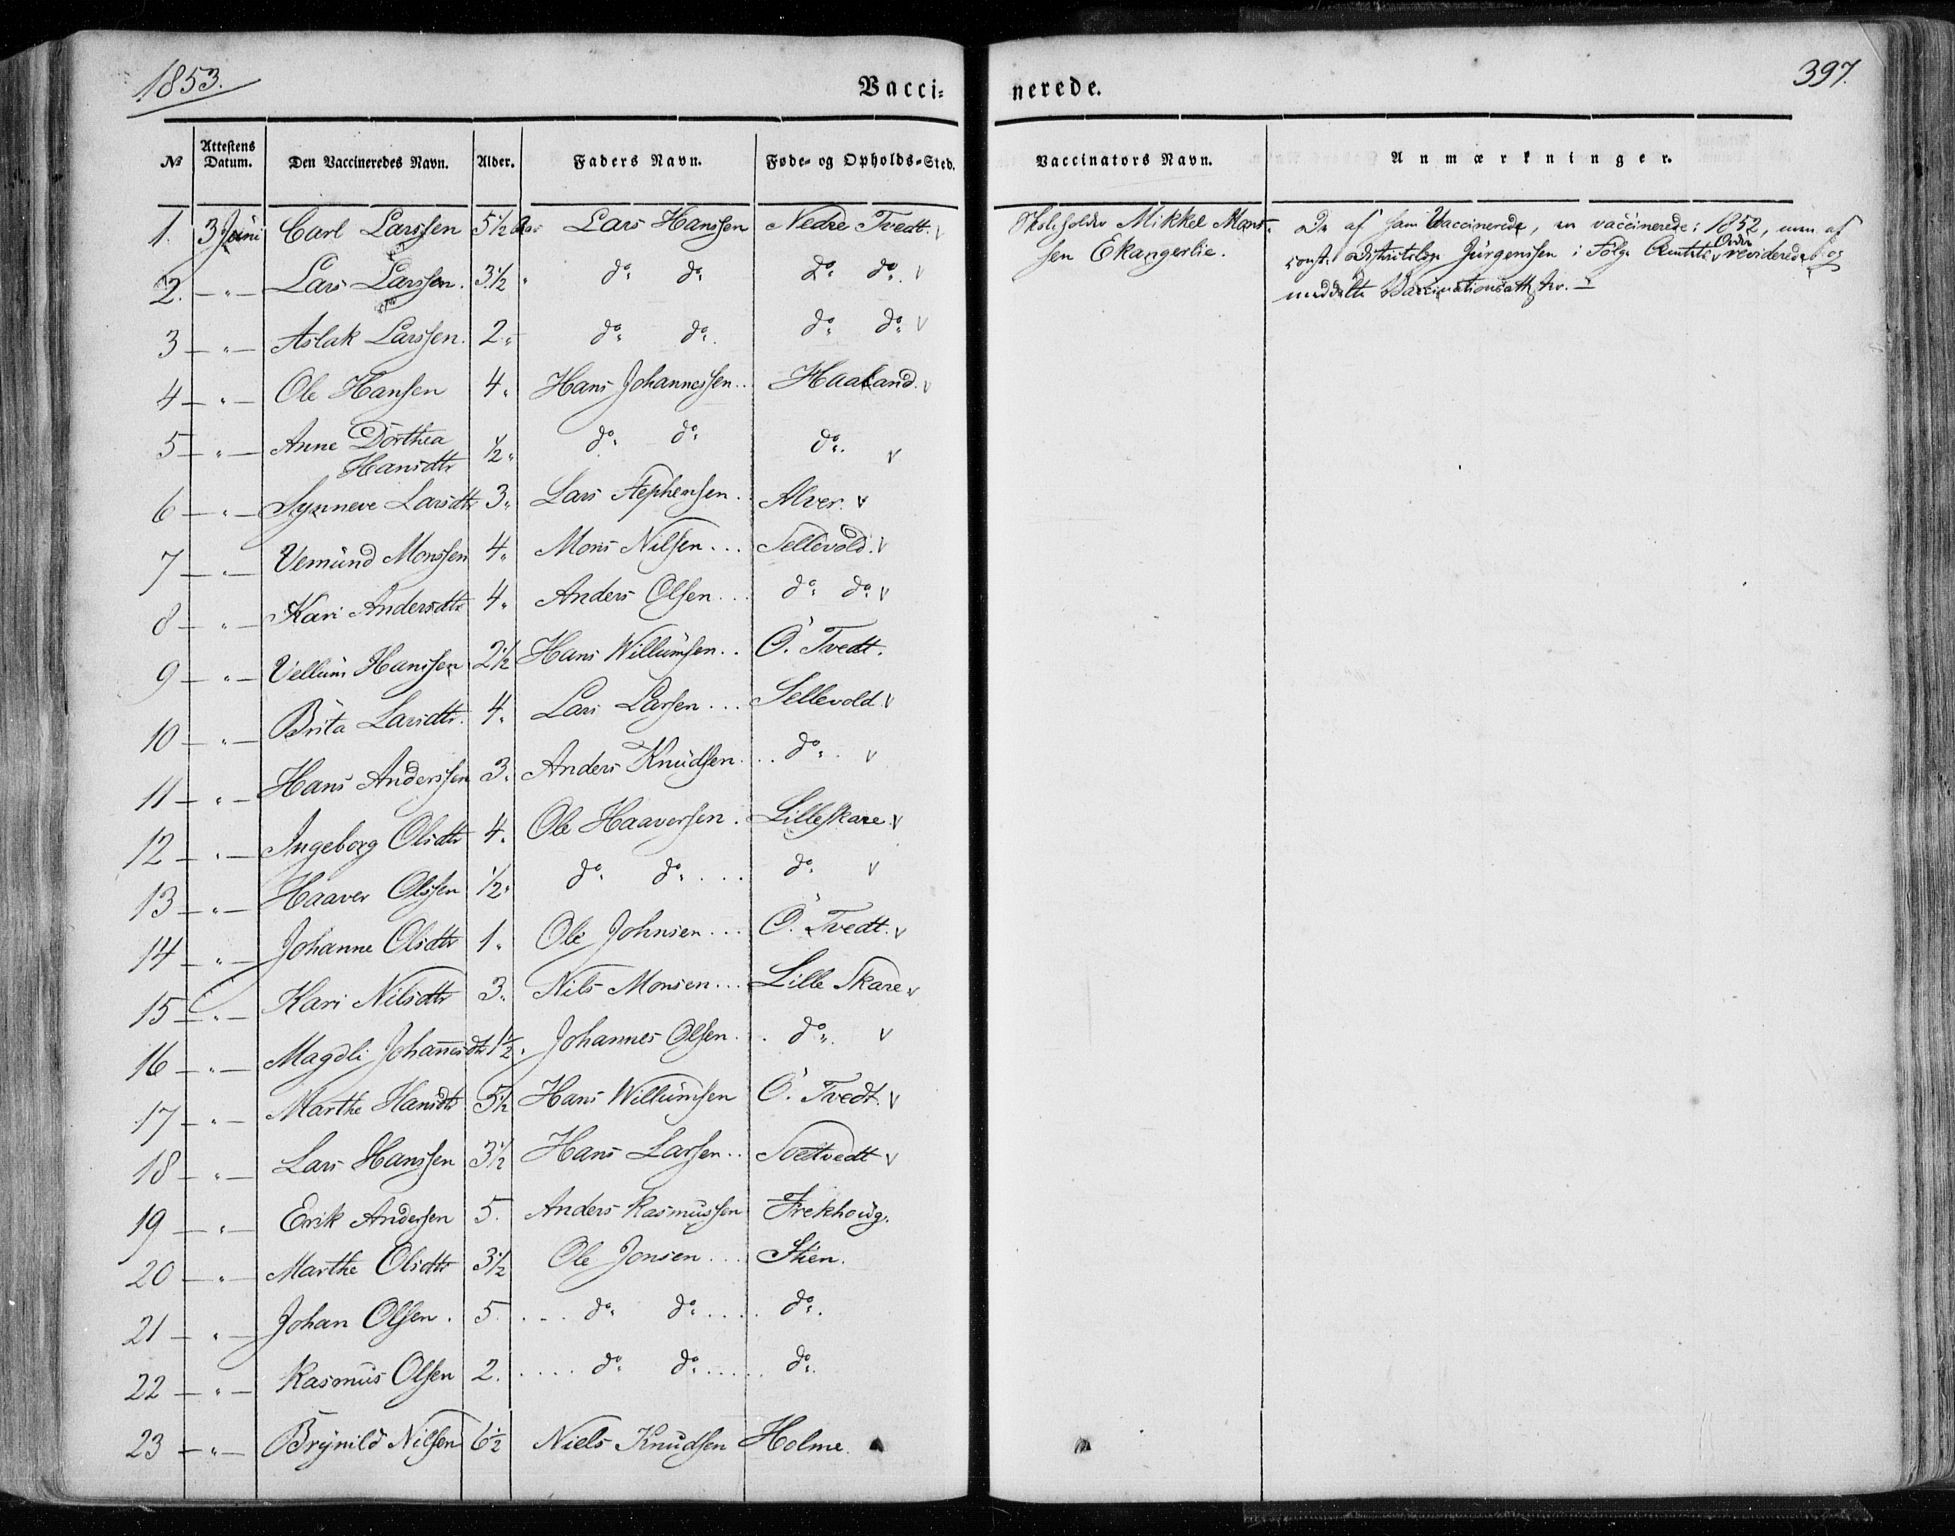 1853.
Vacci-
nerede.
397.
No
Attestens Datum.
Den Vaccineredes Navn.
Alder.
Faders Navn.
Føde- og Opholds-Sted.
Vaccinators Navn.
Anmærkninger.
1. 3 Juni Carl Larssen 5 1/2 Lars Hanssen Nedre Tvedt. v
2. — " — Lars Larssen. 3 1/2 " do. do. do. do. v
3 — " — Aslak Larssen. 2 " do. do. do. do. v
4 — " — Ole Hansen 4 " Hans Johannessen.. Haaland. v
5 — " — Anne Dorthea
Hansdtr 1/2 " do. do. do. v
6 — " — Synneve Larsdtr 3 " Lars Stephensen. Alver. v
7 — " — Vemund Monssen 4 " Mons Nilsen... Sellevold. v
8 — " — Kari Andersdtr 4 " Anders Olsen... do. do. v
9 — " — Vellum Hanssen 2 1/2 Hans Willumsen.. Ö. Tvedt.
10 — " — Brita Larsdtr. 4 " Lars Larsen... Sellevold. v
11 — " — Hans Anderssen 3 " Anders Knudsen... do. v
12 — " — Ingeborg Olsdtr 4 " Ole Haaversen. Lilleskare. v
13 — " — Haaver Olssen 1/2 " do. do.... do. v
14 — " — Johanne Olsdtr 1 " Ole Johnsen... Ö. Tvedt. v
15 — " — Kari Nilsdtr 3 " Nils Monsen... Lille Skare v
16 — " — Magdli Johannesdtr 1 1/2 " Johannes Olsen.. do. v
17 — " — Marthe Hansdtr 5 1/2 Hans Willumsen Ö. Tvedt. v
18 — " — Lars Hanssen 3 1/2 Hans Larsen.. Toftvedt v
19 — " — Erik Andersen 5. Anders Rasmussen Frekhoug.
20 — " — Marthe Olsdtr 3 1/2 Ole Jonsen... Stien.
21 — " — Johan Olsen. 5.... do. do..... do.
22 — " — Rasmus Olsen 2..... do. do...... do.
23 — " — Brynild Nilsen 6 1/2 Niels Knudsen Holme.
Skoleholder Mikkel Mons-
sen Ekangerlie.
De af ham Vaccinerede, er vaccinerede i 1852, men af
const. Districtslæge Jürgenssen i Følge Amtets Ordre reviderede og
meddelte Vaccinationsatt.